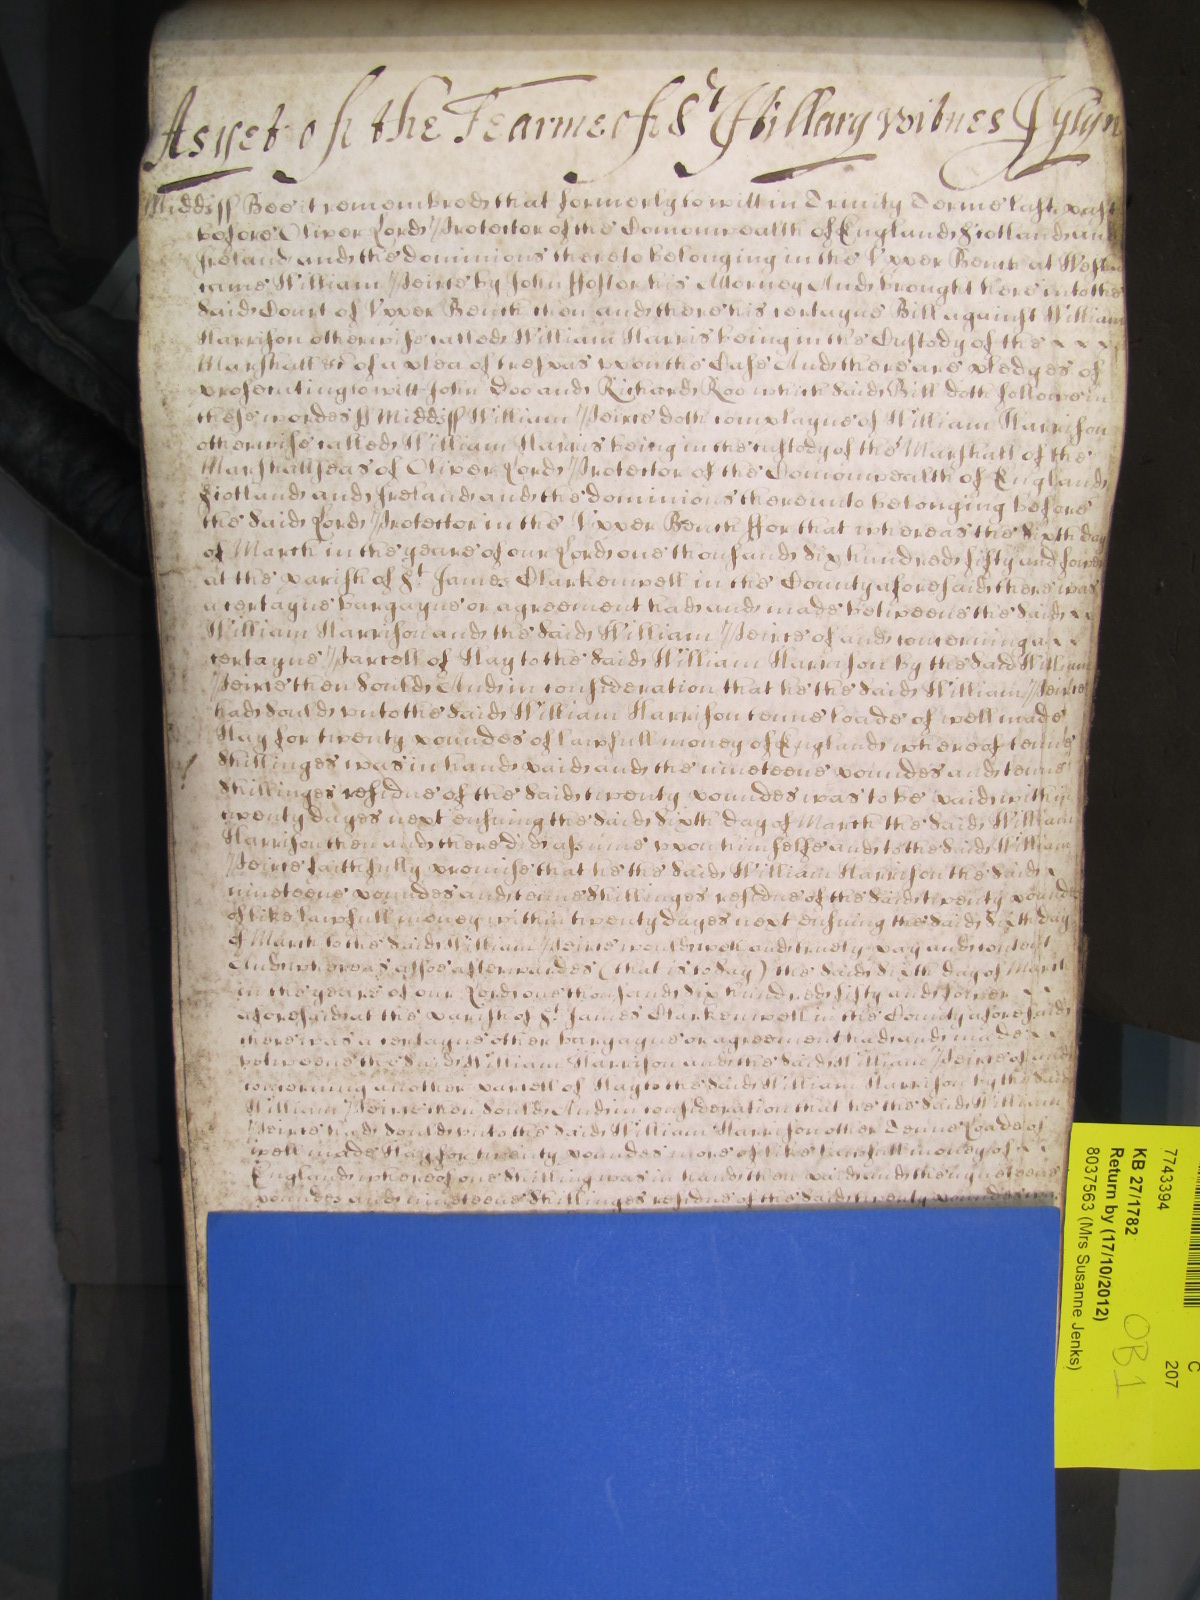 As yet of the Tearme of St Hillary witnes Iylyn
Middss Bee it remembred that formerly to witt in Trinity Terme last past
before Oliver Lord Protector of the Comonwealth of England Scotland and
Ireland and the dominions thereto belonging in the Upper Bench at Westm
came William Peirce by John ffoster his Attorney And brought here into the
said Court of Upper Bench then and there his certayne Bill against William
Harrison otherwise called William Harris being in the Custody of the
Marshall &c of a plea of trespas upon the Case And there are pledges of
prosecuting to witt John Doo and Richard Roo which said Bill doth follow in
these wordes ss Middss William Peirce doth complayne of William Harrison
otherwise called William Harris being in the custody of the Marshall of the
Marshallseas of Oliver Lord Protector of the Comonwealth of England
Scotland and Ireland and the dominions thereunto belonging before
the said Lord Protector in the Upper Bench ffor that whereas the sixth day
of March in the yeare of our Lord one thousand six hundred fifty and fower
at the parish of St James Clarkenwell in the County aforesaid there was
a certayne bargayne or agreement had and made betweene the said
William Harrison and the said William Peirce of and concerning a
certayne Parcell of Hay to the said William Harrison by the said William
Peirce then sould And in consideration that he the said William Peirce
had sould unto the said William Harrison tenne loade of well made
Hay for twenty poundes of lawfull money of England whereof tenne
shillinges was in hand paid and the nineteene poundes and tenne
shillinges residue of the said twenty poundes was to be paid within
twenty dayes next ensuing the said sixth day of March the said William
Harrison then and there did assume upon himselfe and to the said William
Peirce faithfully promise that he the said William Harrison the said
nineteene poundes and tenne shillinges residue of the said twenty poundes
of like lawfull money within twenty dayes next ensuing the said sixth day
of March to the said William Peirce would well and truely pay and content
And whereas alsoe afterwardes (that is to say) the said sixth day of March
in the yeare of our Lord one thousand six hundred fifty and fower
aforesaid at the parish of St James Clarkenwell in the County aforesaid
there was a certayne other bargayne or agreement had and made
betweene the said William Harrison and the said William Peirce of and
concerning another parcell of Hay to the said William Harrison by the said
William Peirce then sould And in consideration that he the said William
Peirce had sould unto the said William Harrison other Tenne Loade of
well made Hay for twenty poundes more of like lawfull money of
England whereof one shilling was in hand then paid and the nyneteene
poundes and nineteene shillinges residue of the said twenty poundes
7743394
KB 27/1782
Return by (17/10/2012)
8037563 (Mrs Susanne Jenks)
C
207
OB1